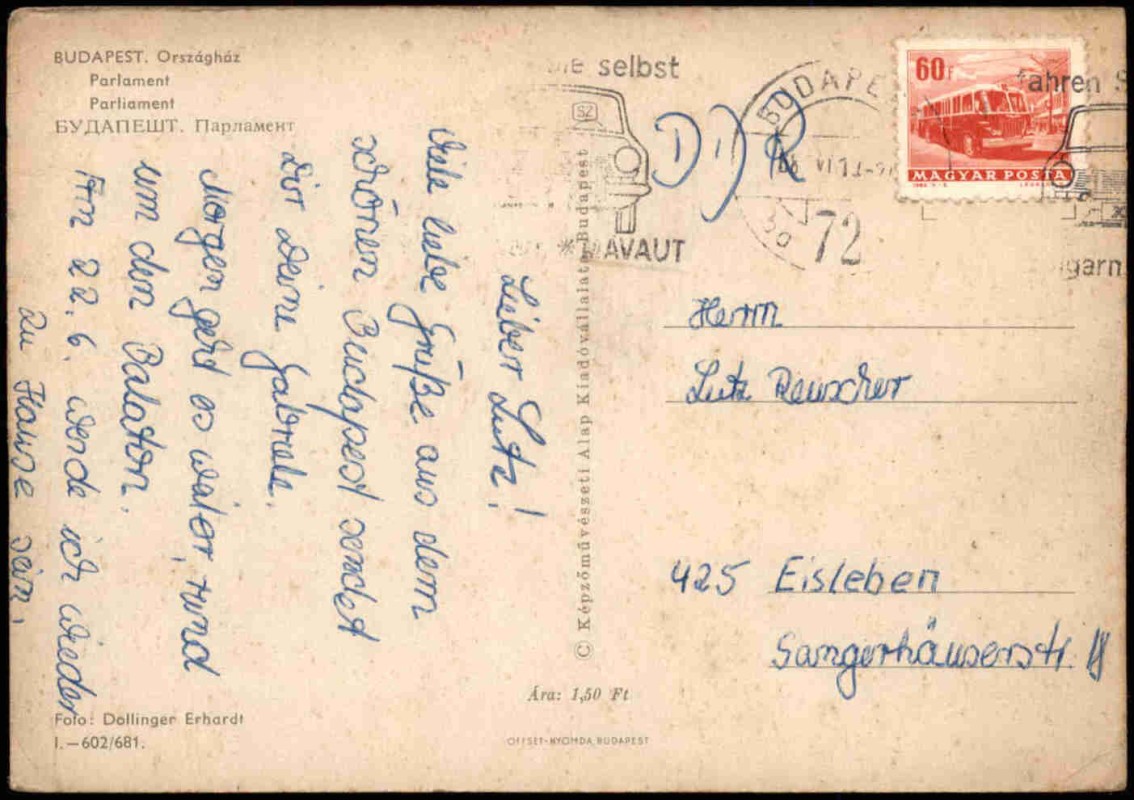 BUDAPEST. Országház
Parlament
Parliament
БУДАПЕШТ. Парламент
Lieber Lutz!
Viele liebe Grüße aus dem
schönen Budapest sendet
Dir Deine Gabriele.
Morgen geht es weiter, rund
um den Balaton.
Am 22.6. werde ich wieder
zu Hause sein.
Foto: Dollinger Erhardt
I.—602/681.
© Képzőművészeti Alap Kiadóvállalata, Budapest
Ára: 1,50 Ft
OFFSET-NYOMDA BUDAPEST
selbst
SZ
MAVAUT
DDR
BUDAPE
72
60f
MAGYAR POSTA
fahren S
garn
Herrn
Lutz Reuscher
425 Eisleben
Sangerhäuserstr.